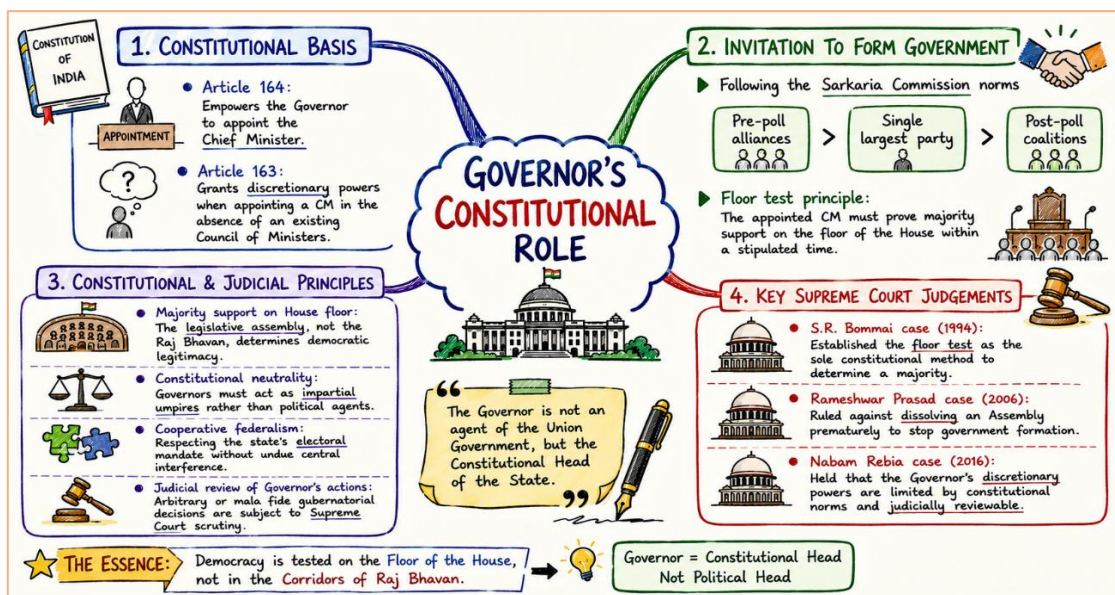 CONSTITUTION
OF
INDIA
1. CONSTITUTIONAL BASIS
Article 164:
Empowers the Governor
to appoint the
Chief Minister.
APPOINTMENT
?
Article 163:
Grants discretionary powers
when appointing a CM in the
absence of an existing
Council of Ministers.
GOVERNOR'S
CONSTITUTIONAL
ROLE
2. INVITATION TO FORM GOVERNMENT
Following the Sarkaria Commission norms
Pre-poll
alliances
>
Single
largest party
>
Post-poll
coalitions
Floor test principle:
The appointed CM must prove majority
support on the floor of the House within
a stipulated time.
3. CONSTITUTIONAL & JUDICIAL PRINCIPLES
Majority support on House floor:
The legislative assembly, not the
Raj Bhavan, determines democratic
legitimacy.
Constitutional neutrality:
Governors must act as impartial
umpires rather than political agents.
Cooperative federalism:
Respecting the state's electoral
mandate without undue central
interference.
Judicial review of Governor's actions:
Arbitrary or mala fide gubernatorial
decisions are subject to Supreme
Court scrutiny.
“
The Governor is not an
agent of the Union
Government, but the
Constitutional Head
of the State.
”
4. KEY SUPREME COURT JUDGEMENTS
S.R. Bommai case (1994):
Established the floor test as the
sole constitutional method to
determine a majority.
Rameshwar Prasad case (2006):
Ruled against dissolving an Assembly
prematurely to stop government formation.
Nabam Rebia case (2016):
Held that the Governor's discretionary
powers are limited by constitutional
norms and judicially reviewable.
THE ESSENCE:
Democracy is tested on the Floor of the House,
not in the Corridors of Raj Bhavan.
Governor = Constitutional Head
Not Political Head